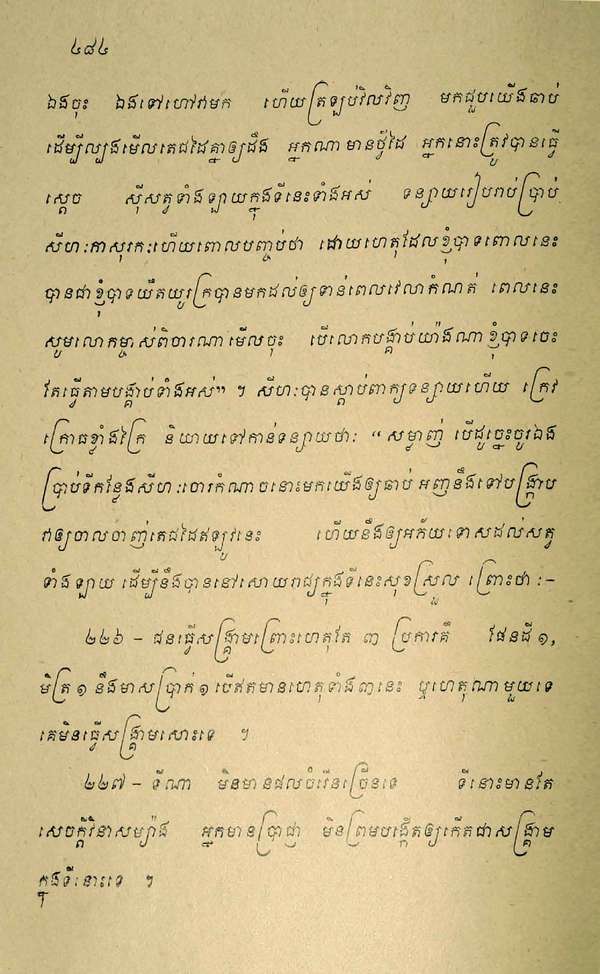 ៤៨៤
ឯងចុះ ឯងទៅហៅវាមក ហើយត្រឡប់វិលវិញ មកជួបយើងឆាប់
ដើម្បីល្បងមើលតេជដៃគ្នាឲ្យដឹង អ្នកណាមានថ្វីដៃ អ្នកនោះត្រូវបានធ្វើ
ស្ដេច ស៊ីសត្វទាំងឡាយក្នុងទីនេះទាំងអស់ ទន្សាយរៀបរាប់ប្រាប់
សីហៈកាសុរកៈហើយពោលបញ្ចប់ថា ដោយហេតុដែលខ្ញុំបាទពោលនេះ
បានជាខ្ញុំបាទយឺតយូរក្របានមកដល់ឲ្យទាន់ពេលវេលាកំណត់ ពេលនេះ
សូមលោកម្ចាស់ពិចារណាមើលចុះ បើលោកបង្គាប់យ៉ាងណាខ្ញុំបាទចេះ
តែធ្វើតាមបង្គាប់ទាំងអស់” ។ សីហៈបានស្ដាប់ពាក្យទន្សាយហើយ ក្រេវ
ក្រោធខ្លាំងក្រៃ និយាយទៅកាន់ទន្សាយថា: “ សម្លាញ់ បើដូច្នេះចូរឯង
ប្រាប់ទីកន្លែងសីហៈចោរកំណាចនោះមកយើងឲ្យឆាប់ អញនឹងទៅបង្ក្រាប
វាឲ្យចាលចាញ់តេជដៃឥឡូវនេះ ហើយនឹងឲ្យអភ័យទោសដល់សត្វ
ទាំងឡាយ ដើម្បីនឹងបាននៅសោយរាជ្យក្នុងទីនេះសុខស្រួល ព្រោះថា :-
២២៦ - ជនធ្វើសង្គ្រាមព្រោះហេតុតែ ៣ ប្រការគឺ ផែនដី ១,
មិត្រ ១ នឹងមាសប្រាក់ ១ បើឥតមានហេតុទាំង៣នេះ ឬហេតុណាមួយទេ
គេមិនធ្វើសង្គ្រាមសោះទេ ។
២២៧ - ទីណា មិនមានផលចំរើនច្រើនទេ ទីនោះមានតែ
សេចក្ដីវិនាសម្យ៉ាង អ្នកមានប្រាជ្ញា មិនព្រមបង្កើតឲ្យកើតជាសង្គ្រាម
ក្នុងទីនោះទេ ។